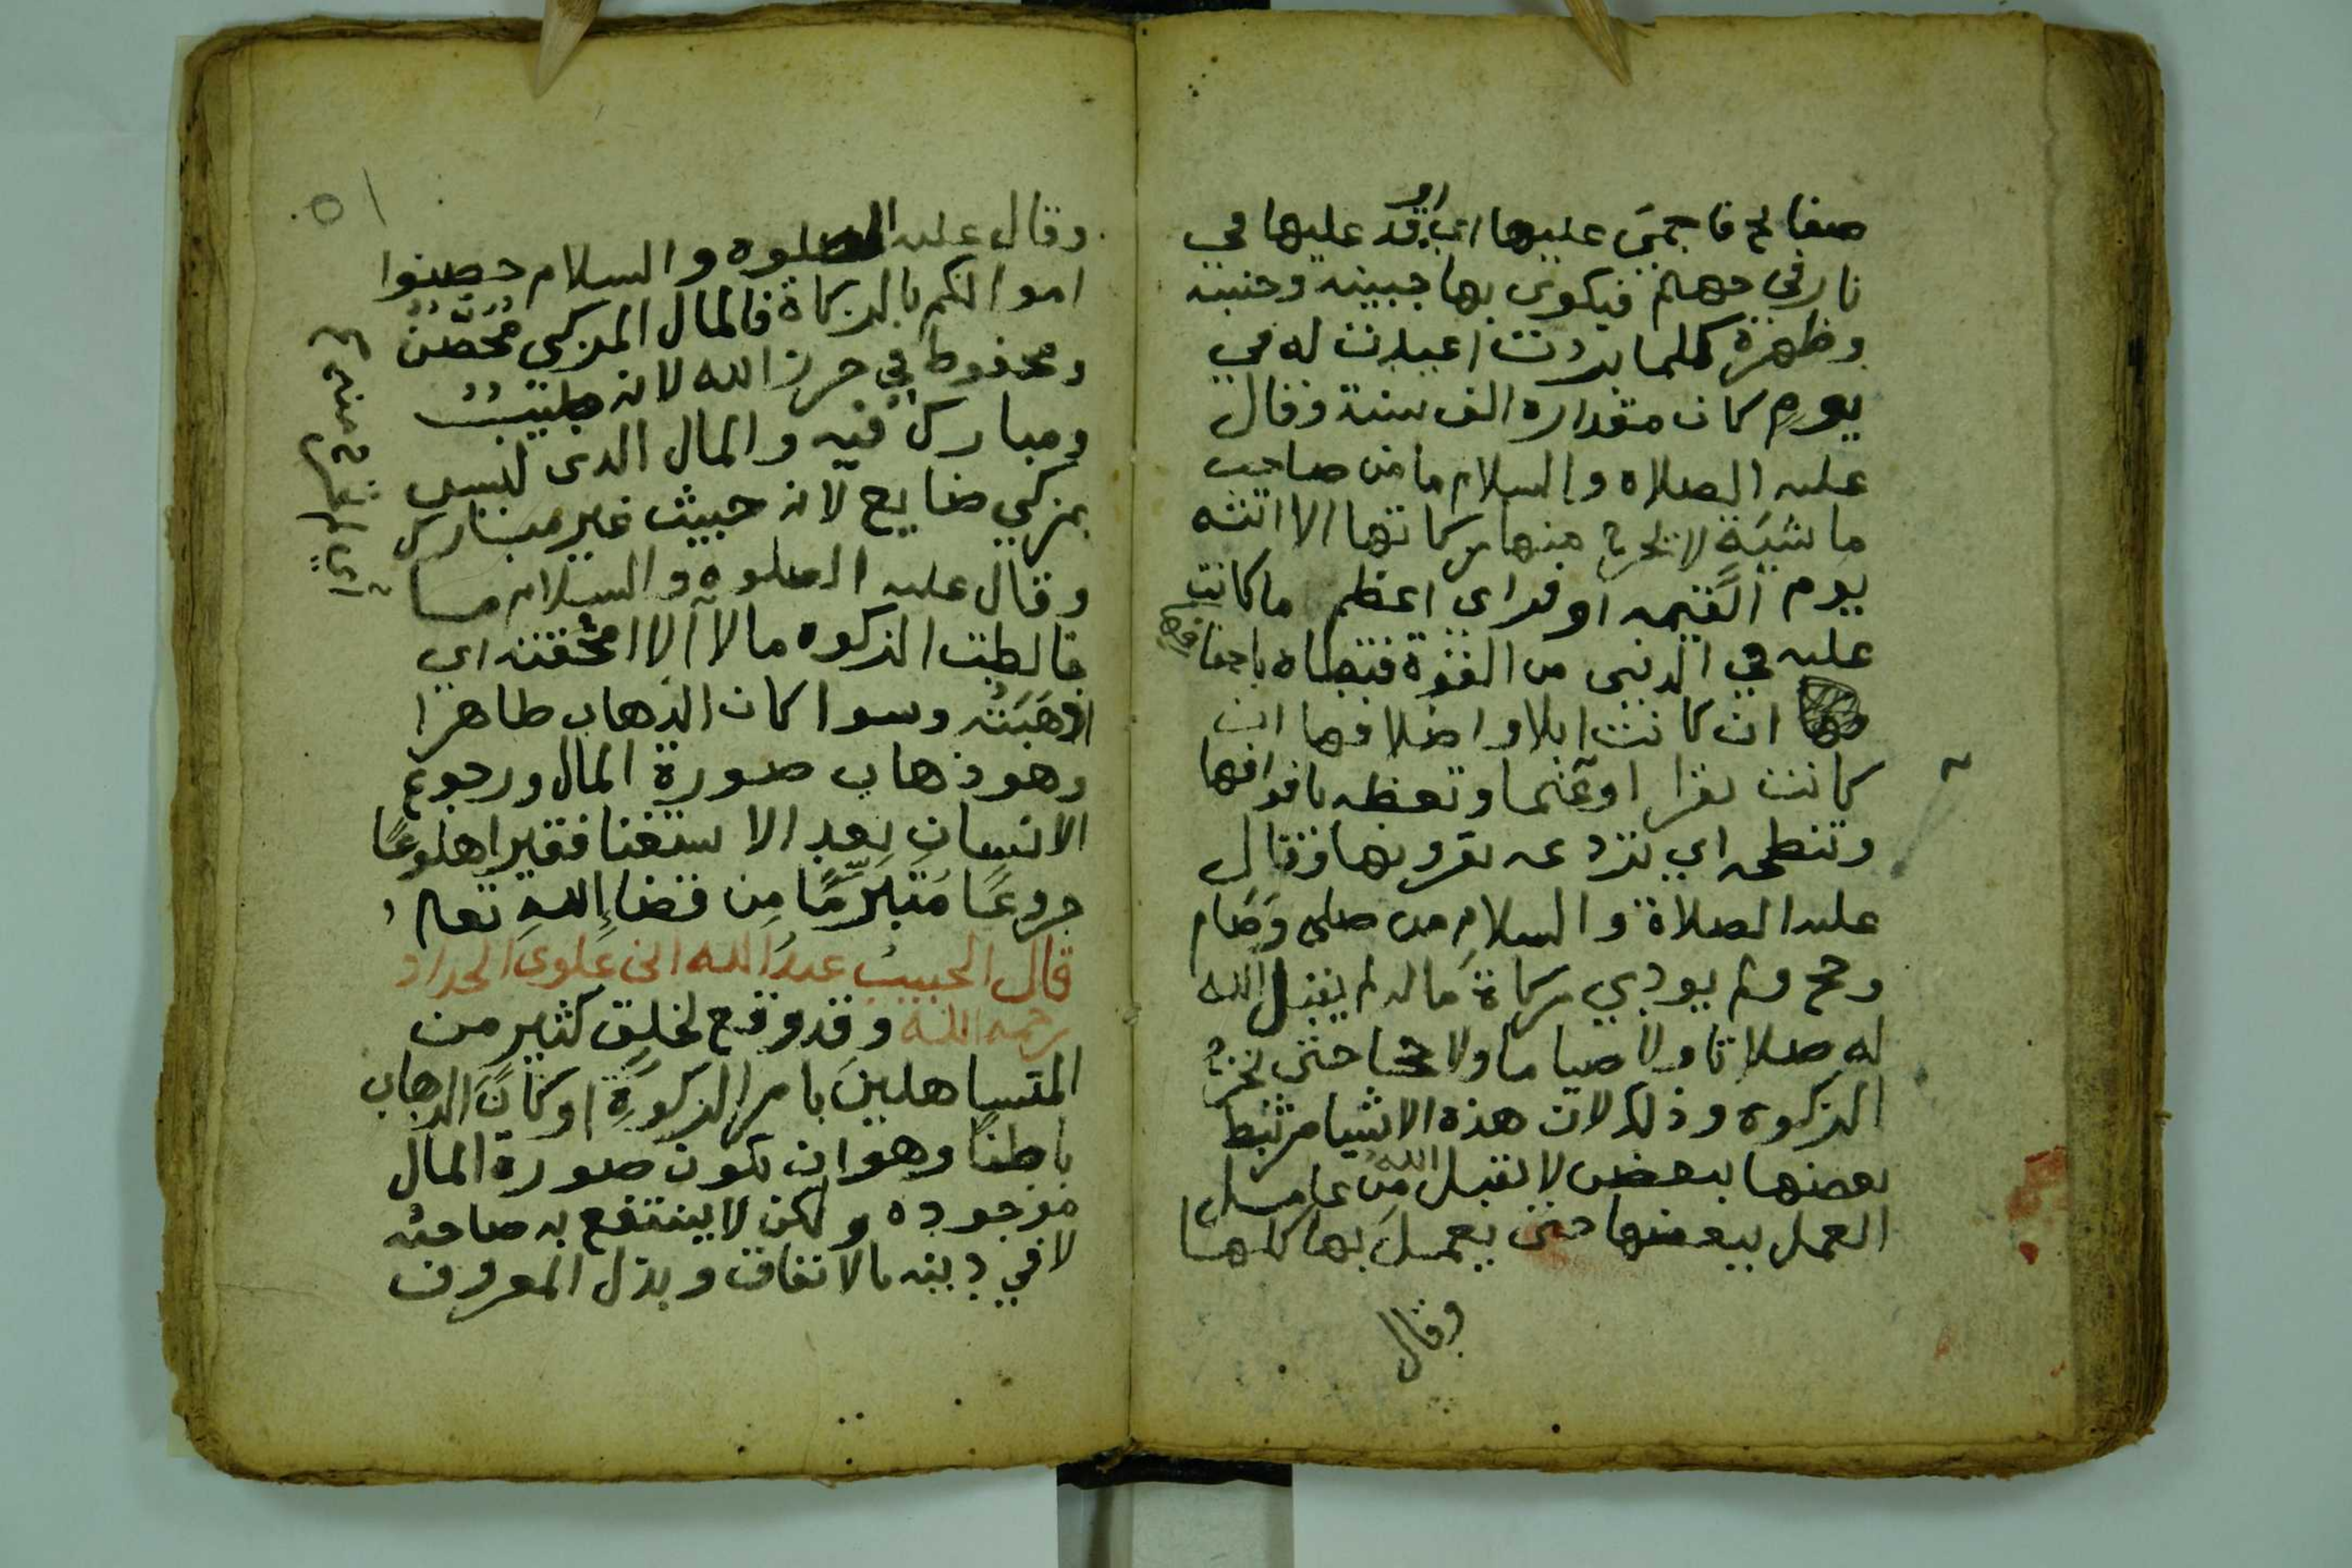 صفايح فاحمي عليها اي اوقد عليها في
نار في جهنم فيكوى بها جبينه وجنبه
وظهره كلما بردت اعيدت له في
يوم كان مقداره الف سنة وقال
عليه الصلاة والسلام ما من صاحب
ماشية لا يخرج منها زكاتها الا اتته
يوم القيمه اوفر اي اعظم ما كانت
عليه في الدنيى من القوة فتطاه باخفافها
ان كانت ابلا واضلافها ان
كانت بقرا او غنما وتعظه بافواهها
وتنطحه اي تردعه بقرونها وقال
عليه الصلاة والسلام من صلى وصام
وحج ولم يودي زكاة ماله لم يقبل الله
له صلاتا ولا صياما ولا حجا حتى يخرج
الزكوة وذلك لان هذه الاشيا مرتبط
بعضها ببعض لا يقبل الله من عامل
العمل ببعضها حتى يعمل بها كلها
وقال
وقال عليه الصلوة والسلام حصنوا
اموالكم بالزكاة فالمال المزكى محصن
ومحفوظ في حرز الله لانه طيب
ومبارك فيه والمال الذى ليس
بمزكي ضايع لانه خبيث غير مبارك
وقال عليه الصلوة والسلام ما
خالطت الزكوه مالا الا امحقته اي
اذهبته وسوا كان الذهاب ظاهرا
وهو ذهاب صورة المال ورجوع
الانسان بعد الاستغنا فقيرا هلوعا
جزوعا متبرما من قضا الله تعالى
قال الحبيب عبد الله ابن علوى الحداد
رحمه الله وقد وقع لخلق كثير من
المتساهلين بامر الزكوة او كان الذهاب
باطنا وهو ان تكون صورة المال
موجوده ولكن لا ينتفع به صاحبه
لا في دينه بالانفاق وبذل المعروف